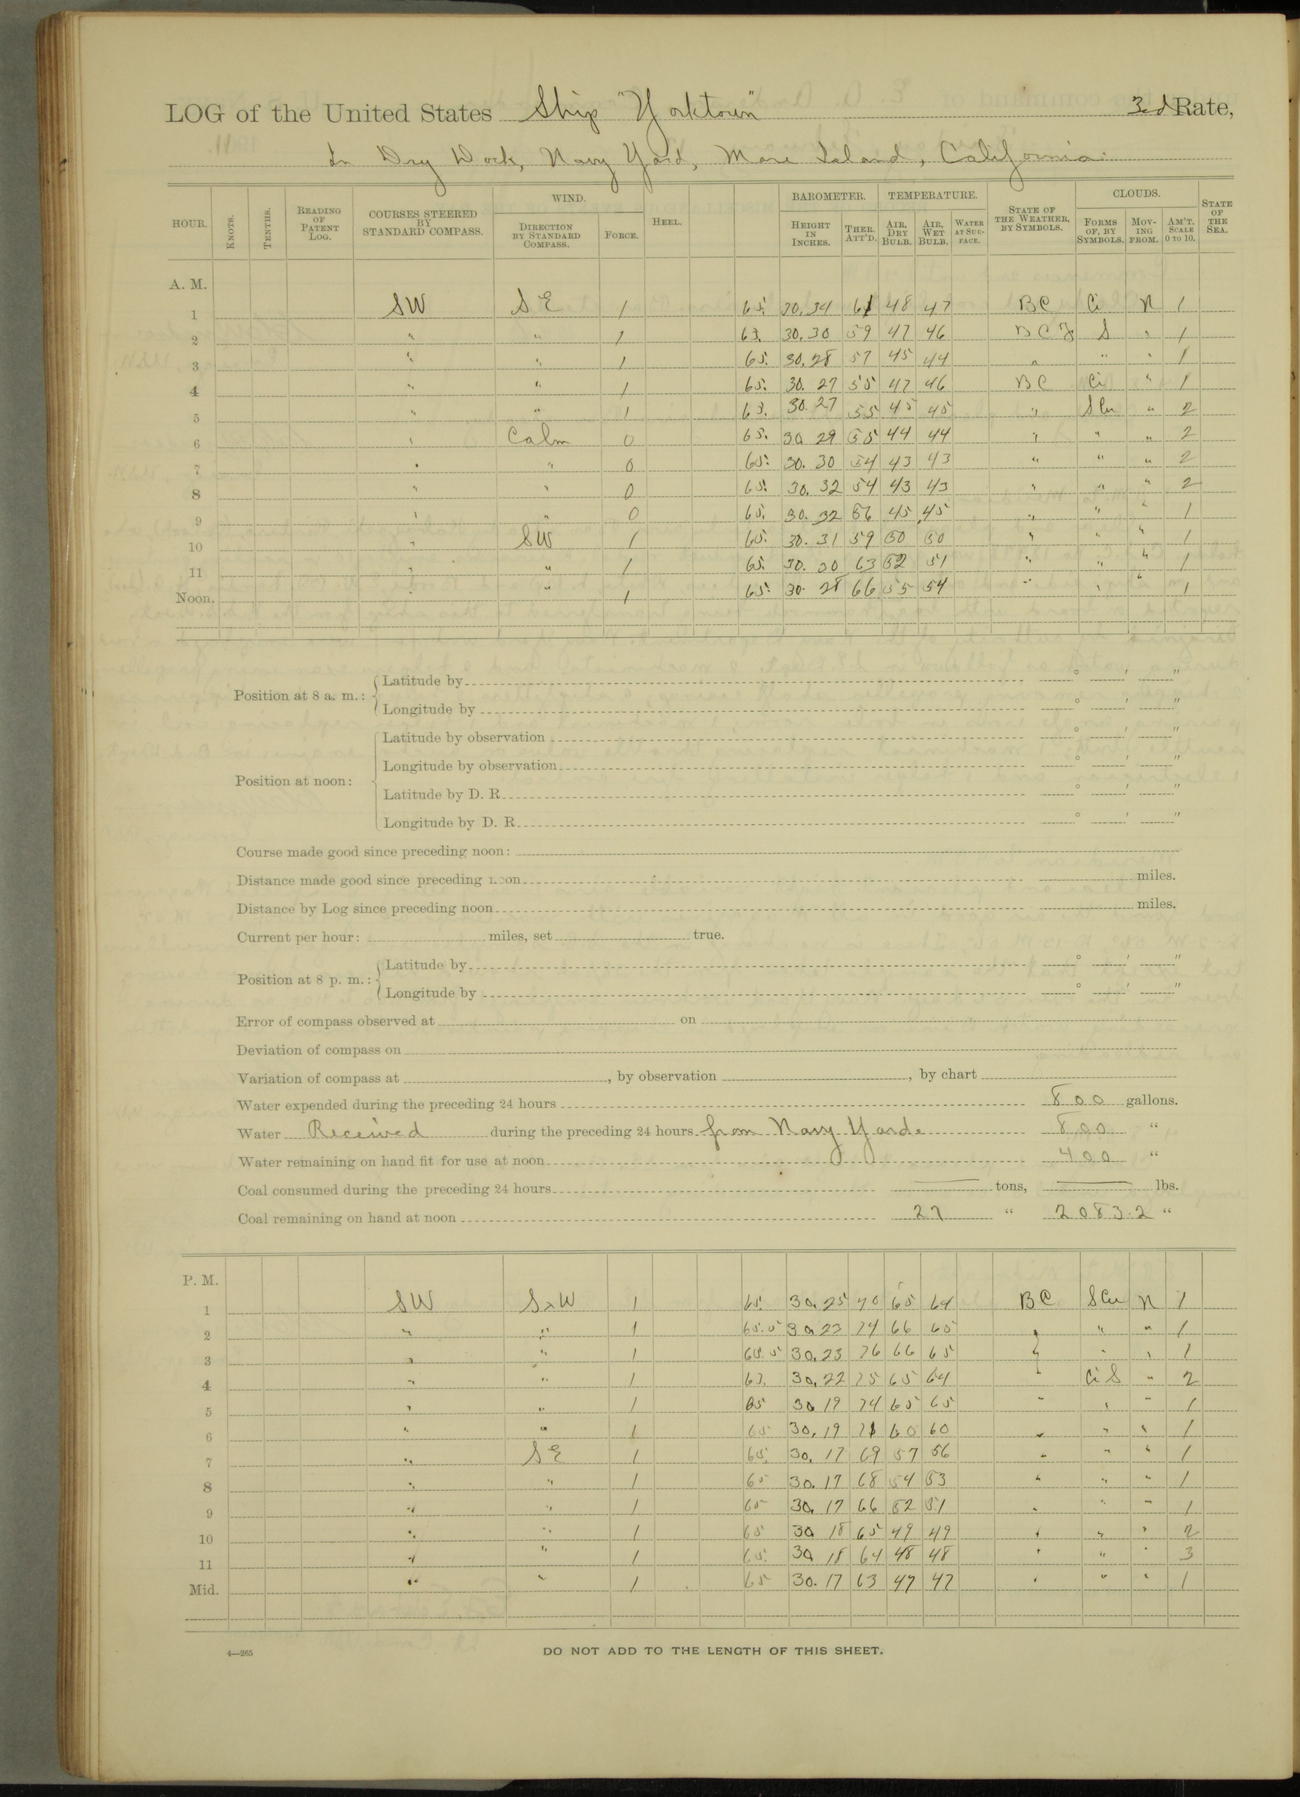 LOG of the United States Ship "Yorktown" 3rd Rate,
In Dry Dock, Navy Yard, Mare Island, California.
HOUR. KNOTS. TENTHS. READING OF PATENT LOG. COURSES STEERED BY STANDARD COMPASS. WIND. DIRECTION BY STANDARD COMPASS. FORCE. HEEL. BAROMETER. HEIGHT IN INCHES. THER. ATT'D. TEMPERATURE. AIR, DRY BULB. AIR, WET BULB. WATER AT SURFACE. STATE OF THE WEATHER, BY SYMBOLS. CLOUDS. FORMS OF, BY SYMBOLS. MOVING FROM. AM'T. SCALE 0 TO 10. STATE OF THE SEA.
A. M.
1 SW SE 1 65. 30.34 61 48 47 BC Ci N 1
2 " " 1 63. 30.30 59 47 46 BCZ S " 1
3 " " 1 65. 30.28 57 45 44 " " " 1
4 " " 1 65. 30.27 55 47 46 BC Ci " 1
5 " " 1 63. 30.27 55 45 45 " SCu " 2
6 " Calm 0 65. 30 29 55 44 44 " " " 2
7 " " 0 65. 30.30 54 43 43 " " " 2
8 " " 0 65. 30.32 54 43 43 " " " 2
9 " " 0 65. 30.32 56 45 45 " " " 1
10 " SW 1 65. 30.31 59 50 50 " " " 1
11 " " 1 65. 30.30 63 52 51 " " " 1
Noon. " " 1 65. 30.28 66 55 54 " " " 1
Position at 8 a. m.: Latitude by ° ′ ″
Longitude by ° ′ ″
Position at noon: Latitude by observation ° ′ ″
Longitude by observation ° ′ ″
Latitude by D. R. ° ′ ″
Longitude by D. R. ° ′ ″
Course made good since preceding noon:
Distance made good since preceding noon miles.
Distance by Log since preceding noon miles.
Current per hour: miles, set true.
Position at 8 p. m.: Latitude by ° ′ ″
Longitude by ° ′ ″
Error of compass observed at on
Deviation of compass on
Variation of compass at , by observation , by chart
Water expended during the preceding 24 hours 800 gallons.
Water Received during the preceding 24 hours from Navy Yard. 800 "
Water remaining on hand fit for use at noon 400 "
Coal consumed during the preceding 24 hours — tons, — lbs.
Coal remaining on hand at noon 27 " 2083.2 "
P. M.
1 SW SxW 1 65. 30.25 70 65 64 BC SCu N 1
2 " " 1 65.5 30.23 74 66 65 " " " 1
3 " " 1 65.5 30.23 76 66 65 " " " 1
4 " " 1 63. 30.22 75 65 64 " CiS " 2
5 " " 1 65 30 19 74 65 65 " " " 1
6 " " 1 65 30.19 71 60 60 " " " 1
7 " SE 1 65. 30.17 69 57 56 " " " 1
8 " " 1 65 30.17 68 54 53 " " " 1
9 " " 1 65 30.17 66 52 51 " " " 1
10 " " 1 65 30 18 65 49 49 " " " 2
11 " " 1 65. 30 18 64 48 48 " " " 3
Mid. " " 1 65 30.17 63 47 47 " " " 1
4—265 DO NOT ADD TO THE LENGTH OF THIS SHEET.